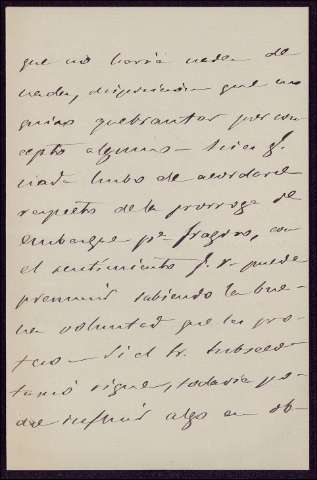 que no haria nada de
nada, disposición que no
quiso quebrantar por con-
cepto alguno —
nada hubo de acordarse
respecto de la prorroga de
embarque pª Fragoso, con
el sentimiento q. V. puede
presumir sabiendo la bue-
na voluntad que les pro-
feso — Si el Sr. Subsecre-
tario sigue, todavia po-
dré influir algo en ob-